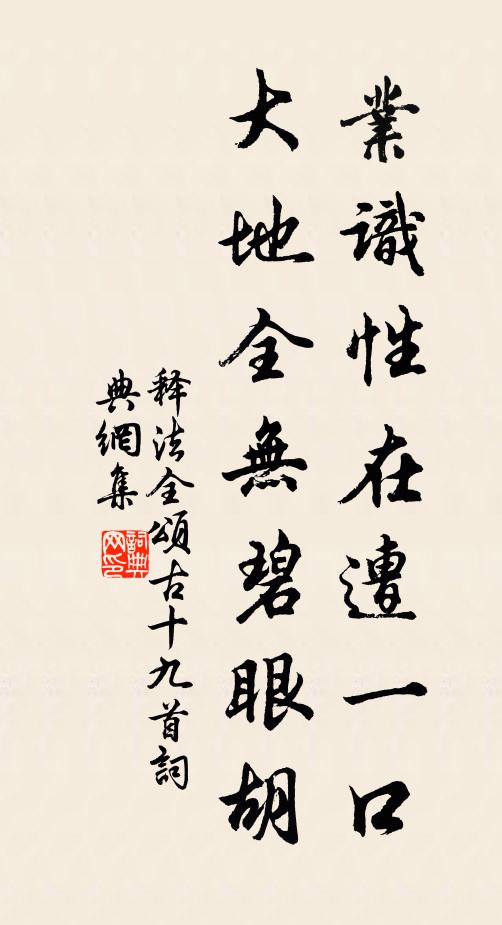 業識性在遭一口
大地全無碧眼胡
释法全頌古十九首詞
典網集
詞典
网印